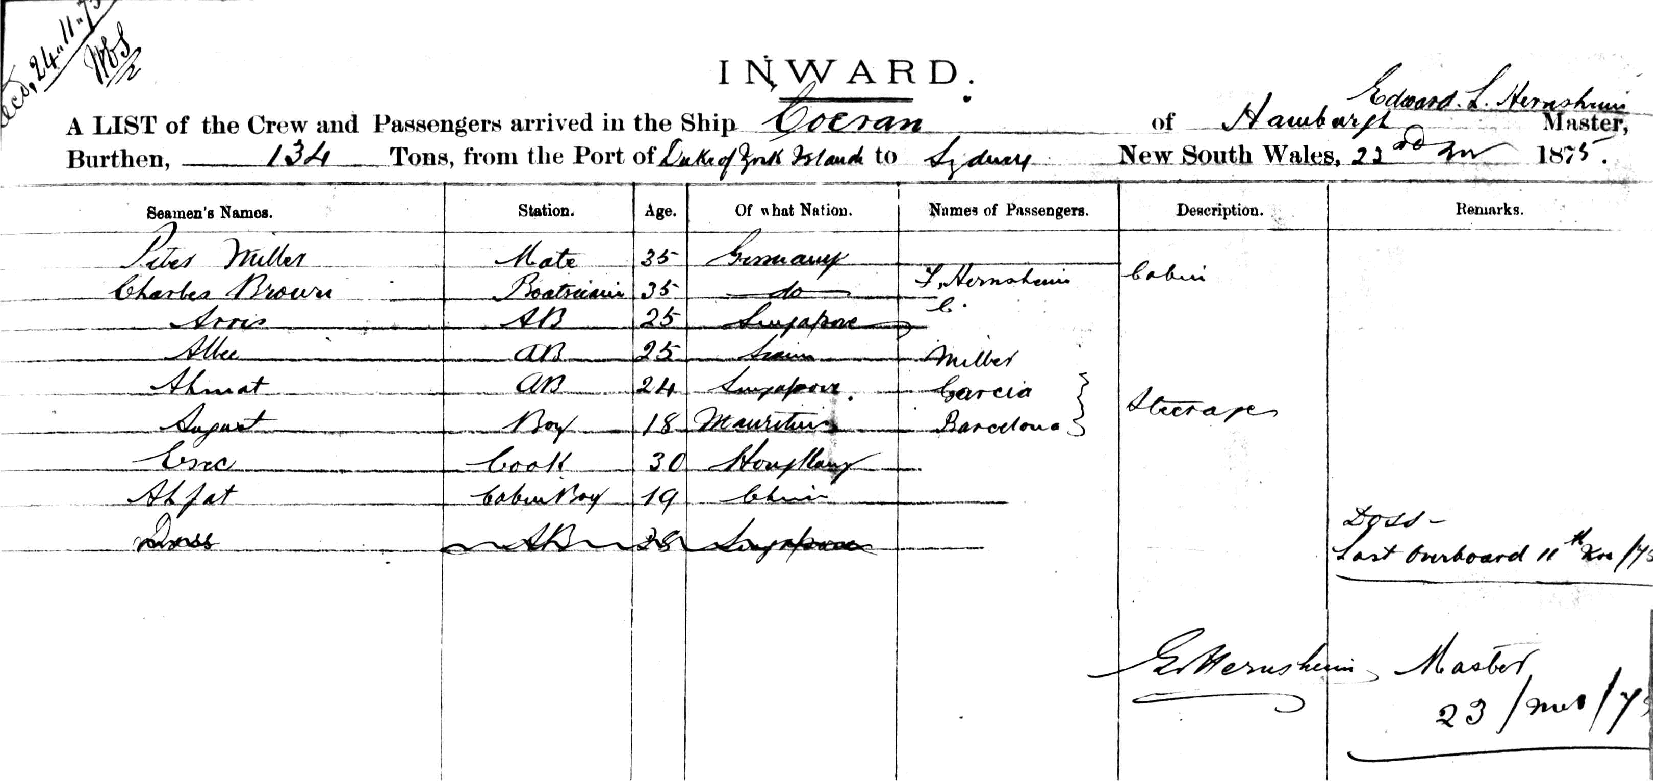 Recd, 24.11.75
INWARD.
Edward. L. Hernsheim
A LIST of the Crew and Passengers arrived in the Ship Coeran of Hamburgh Master,
Burthen, 134 Tons, from the Port of Duke of York Island to Sydney New South Wales, 23rd Nov 1875.
Seamen's Names. Station. Age. Of what Nation. Names of Passengers. Description. Remarks.
Peter Miller Mate 35 Germany
F. Hernsheim Cabin
Charles Brown Boatswain 35 do
C.
Arris AB 25 Singapore
Albee AB 25 Miller
Ahmat AB 24 Singapore. Garcia
Steerage
August Boy 18 Mauritius Barcelona
Eric Cook 30 HongKong
Ahfat Cabin Boy 19 China
Doss AB 28 Singapore
Doss -
Lost Overboard 11th Nov /75
E. Hernsheim Master
23/Nov/75